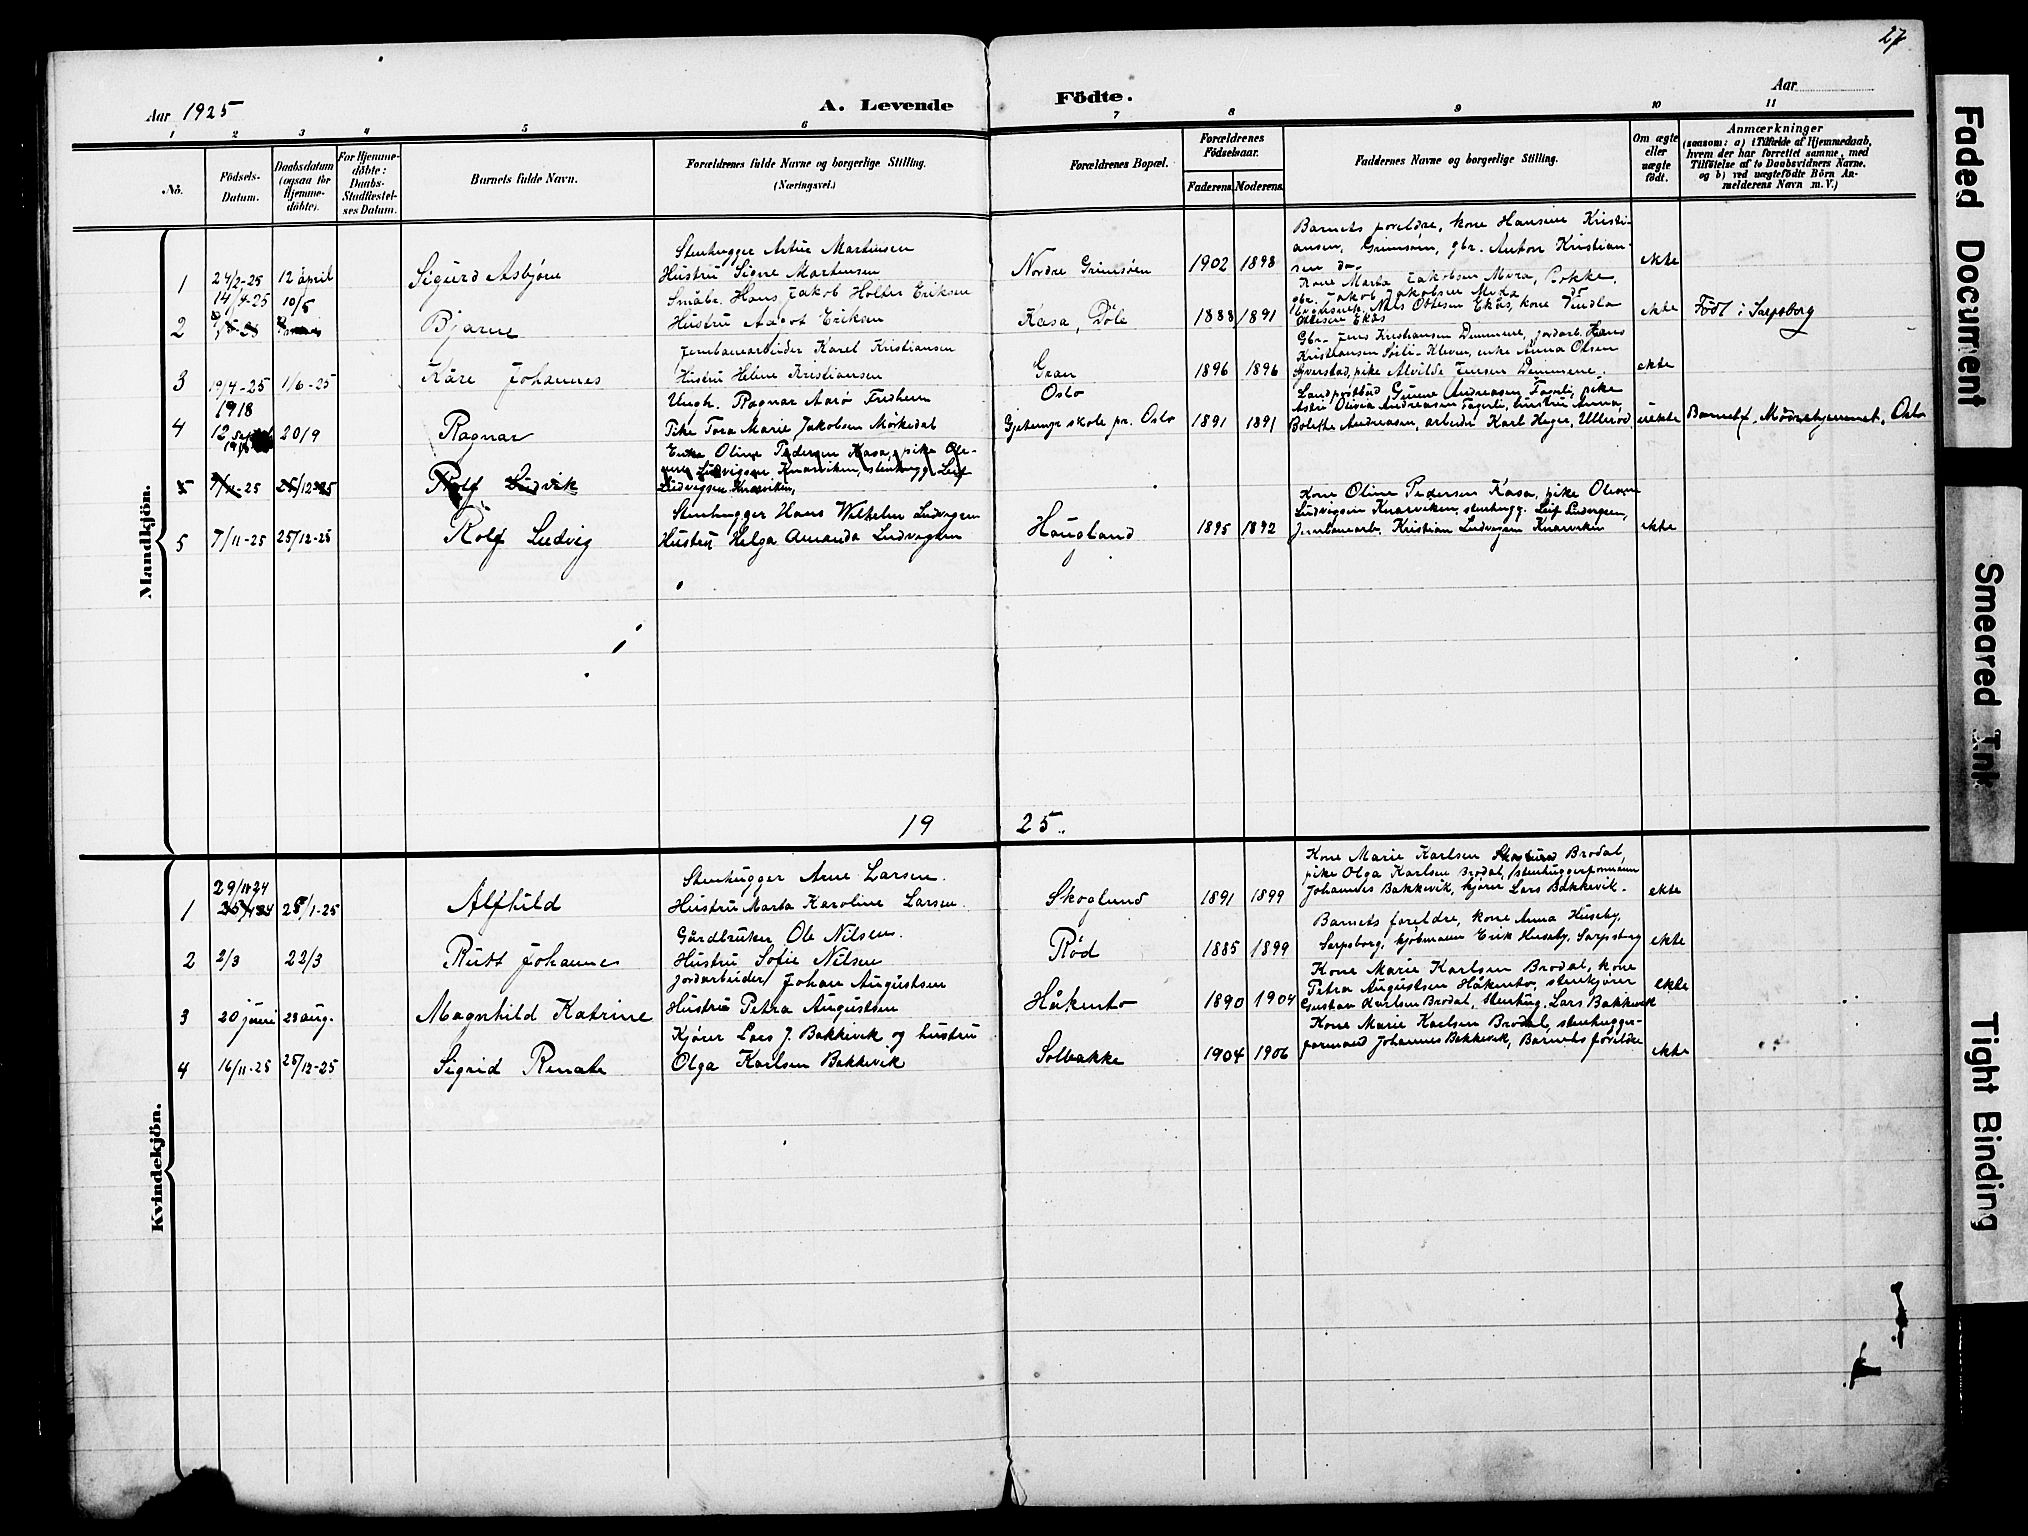 27
Aar 1925
A. Levende Födte.
Aar
1 2 3 4 5 6 7 8 9 10 11
No.
Födsels-
Datum.
Daabsdatum
(ogsaa for
Hjemme-
döbte).
For Hjemme-
döbte:
Daabs-
Stadfæstel-
ses Datum.
Barnets fulde Navn.
Forældrenes fulde Navne og borgerlige Stilling.
(Næringsvei.)
Forældrenes Bopæl.
Forældrenes
Födselsaar.
Faderens. Moderens.
Faddernes Navne og borgerlige Stilling.
Om ægte
eller
uægte
födt.
Anmærkninger
(saasom: a) i Tilfælde af Hjemmedaab,
hvem der har forrettet samme, med
Tilföielse af to Daabsvidners Navne,
og b) ved uægtefödte Börn An-
melderens Navn m. V.)
Mandkjön.
1 24/2-25 12 april
Sigurd Asbjørn
Stenhugger Artur Martinsen
Hustru Signe Martinsen
Nordre Grimsøen
1902 1898
Barnets foreldre, kone Hansine Kristi-
ansen, Grimsøen, gbr. Anton Kristian-
sen do
ekte
2 14/4-25 10/5
Bjarne
Småbr. Hans Jakob Holter Eriksen
Hustru Aagot Eriksen
Kasa, Döle
1888 1891
Kone Marta Jakobsen Mora, Bokke,
gbr. Jakob Jakobsen Mora do
Nils Ottesen Ekås, kone
Ottesen Ekås
ekte
Födt i Sarpsborg
3 19/4-25 1/6-25
Kåre Johannes
Jernbanearbeider Karel Kristiansen
Hustru Helene Kristiansen
Gran
1896 1896
Gbr. Jens Kristiansen Demmene, jordarb. Hans
Kristiansen Sørli-Kleven, enke Anna Olsen
pike Alvilde Jensen Demmene.
ekte
4 1918
12 20/9
Ragnar
Ungk. Ragnar Aarø Fredheim
Pike Tora Marie Jakobsen Mörkedal
Oslo
Gjetemyr skole pr. Oslo
1891 1891
Landpostbud Gunne Andreasen Fagerli, pike
Astri Olivia Andreasen Fagerli, hustru Anna
Bolette Andreasen, arbeider Karl Heger, Ullerød
uekte
Barnet f. Mödrehjemmet, Oslo
5 7/11-25 25/12-25
Rolf Ludvik
Enke Oline Pedersen Kasa, pike Ole-
Ludvigsen Knarviken, stenhugg. Leif
Ludvigsen Knarviken,
5 7/11-25 25/12-25
Rolf Ludvig
Stenhugger Hans Wilhelm Ludvigsen
Hustru Helga Amanda Ludvigsen
Haugland
1895 1892
Kone Oline Pedersen Kasa, pike
Ludvigsen Knarviken, stenhugg. Leif Ludvigsen,
Jernbanearb. Kristian Ludvigsen Knarviken
ekte
19 25.
Kvindekjön.
1 29/11 24 25/1-25
Alfhild
Stenhugger Arne Larsen.
Hustru Marta Karoline Larsen.
Skoglund
1891 1899
Kone Marie Karlsen Brodal,
pike Olga Karlsen Brodal, stenhuggerformann
Johannes Bakkevik, kjører Lars Bakkevik.
ekte
2 2/3 22/3
Rutt Johanne
Gårdbruker Ole Nilsen.
Hustru Sofie Nilsen
Rød
1885 1899
Barnets foreldre, kone Anna Huseby,
Sarpsborg, kjøbmann Erik Huseby, Sarpsborg
ekte
3 20 juni 23 aug.
Magnhild Katrine
Jordarbeider Johan Augustsen
Hustru Petra Augustsen
Håkento
1890 1904
Kone Marie Karlsen Brodal, kone
Petra Augustsen Håkento, stenkjører
Gustav Karlsen Brodal, Stenhug. Lars Bakkevik
ekte
4 16/11-25 25/12-25
Sigrid Renate
Kjører Lars J. Bakkevik og hustru
Olga Karlsen Bakkevik
Solbakke
1904 1906
Kone Marie Karlsen Brodal, stenhugger-
formand Johannes Bakkevik, Barnets foreldre
ekte
Faded Document
Smeared Ink
Tight Binding